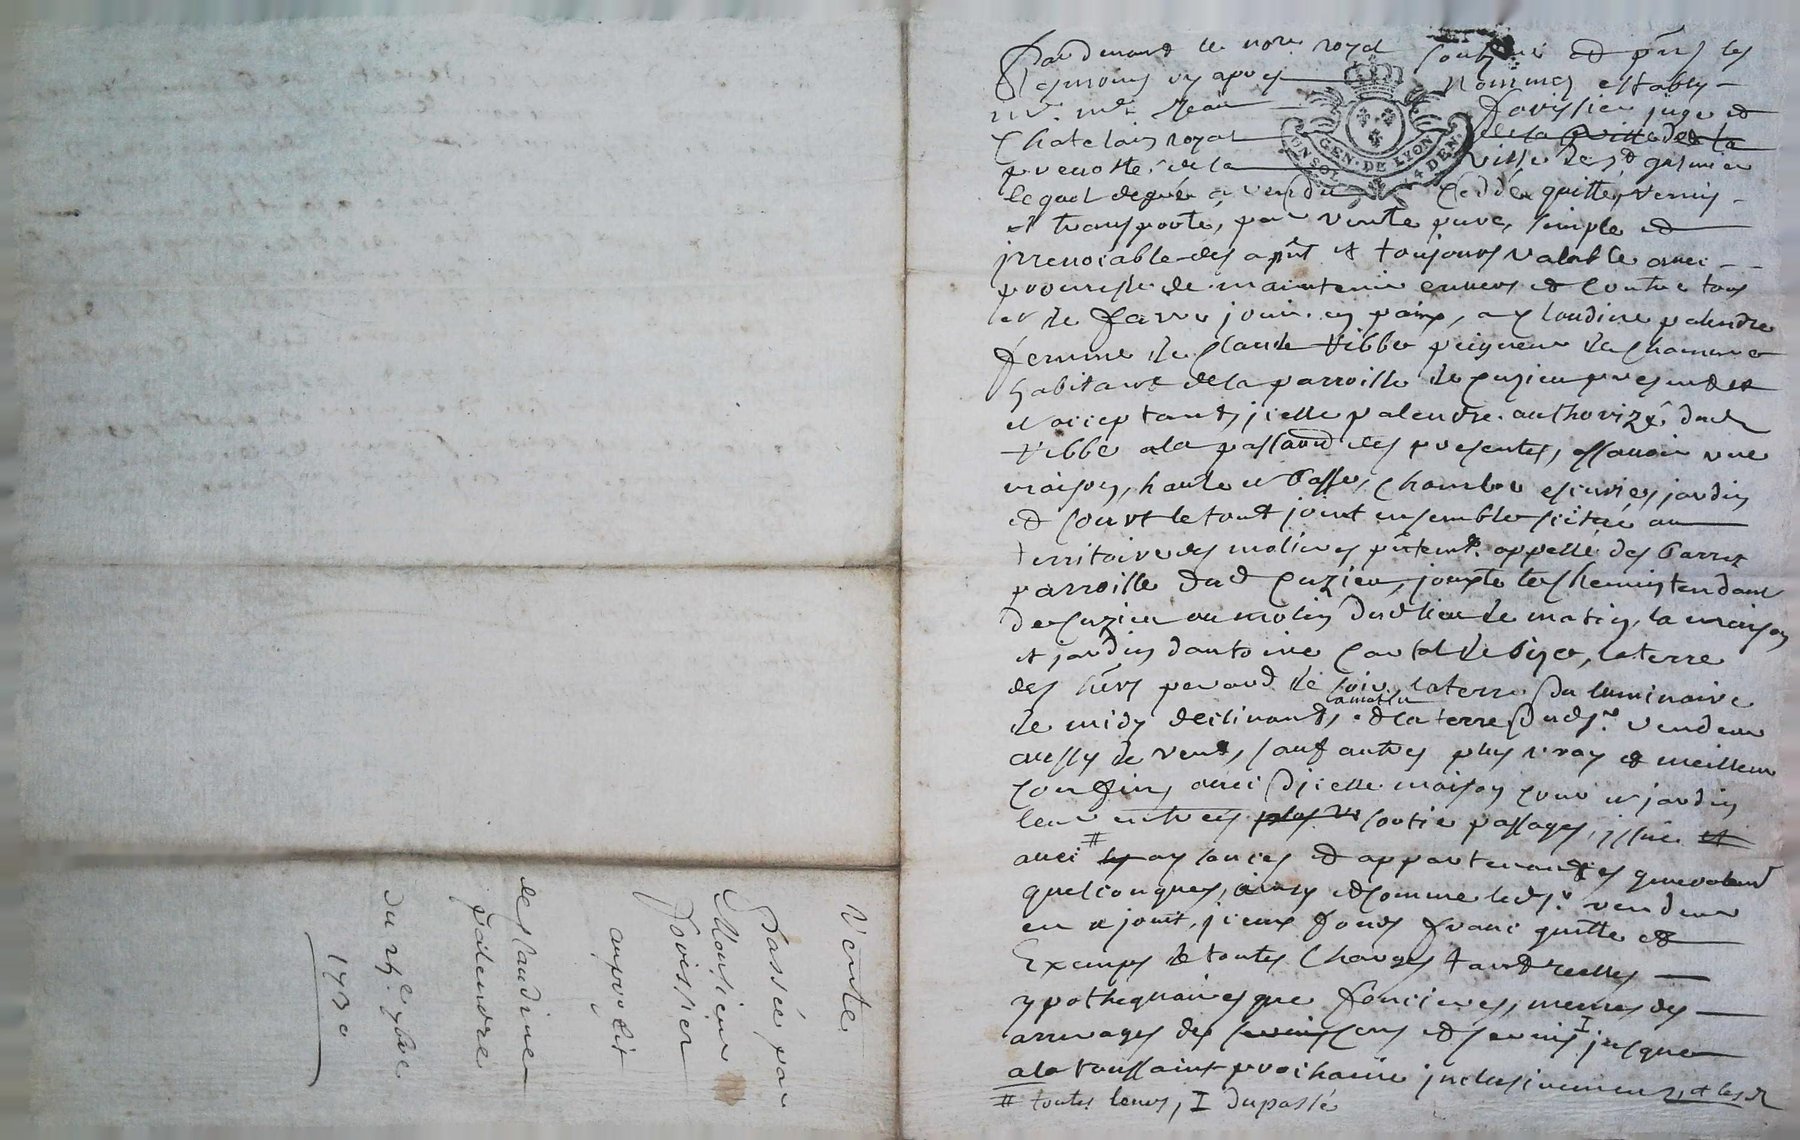 Pardevant le nore royal soubzné et pñs les
tesmoins cy apres nommes estably
Me Jean Fovissier juge et
Chatelain royal de la ville de la
prevosté de la ville de St galmier
lequel de gré a vendu ceddé, quitté, remis
et transporté, par vente pure, simple et
jrrevocable des apñt et toujours valable avec
promesse de maintenir envers et contre tous
et de faire jouir en paix, a Claudine palendre
femme de Claude Vibber peigneur de chanvre
habitant de la parroisse de Cuzieu presente et
et acceptant, jcelle palendre authorizée dud
Vibber a la passation des presentes, assavoir une
maison, haute et basse, chambre escuries, jardin
et court le tout joint ensemble scitué au
territoire des molieres pñtemt appellé des barres
parroisse dud Cuzieu, jouxte le chemin tendant
de Cuzieu au molin dud lieu de matin, la maison
et jardin d'antoine de bize, la terre
des hers de soir, la terre du luminaire
de midy declinant a matin, et la terre dud sr vendeur
aussy de vent, sauf autres plus vray et meilleur
confins, avec d'jcelle maison cour et jardin
leur entrees plus sortie passages, jssue et
avec # les aysances et appartenances generalement
quelconques, ainsy et comme led sr vendeur
en a jouit, jceux fonds franc quitte et
Exempt de toutes charges tant reelles
ypothequaires que foncieres, mesmes des
arrerages des cens et servis I jusques
a la toussaint prochaine jnclusivement, et les
# toutes leurs, I du passé
GEN. DE LYON
4 DEN.
Vente
Passée par
Monsieur
Fovissier
au profit
de Claudine
palendre
du 24e 9bre
1730